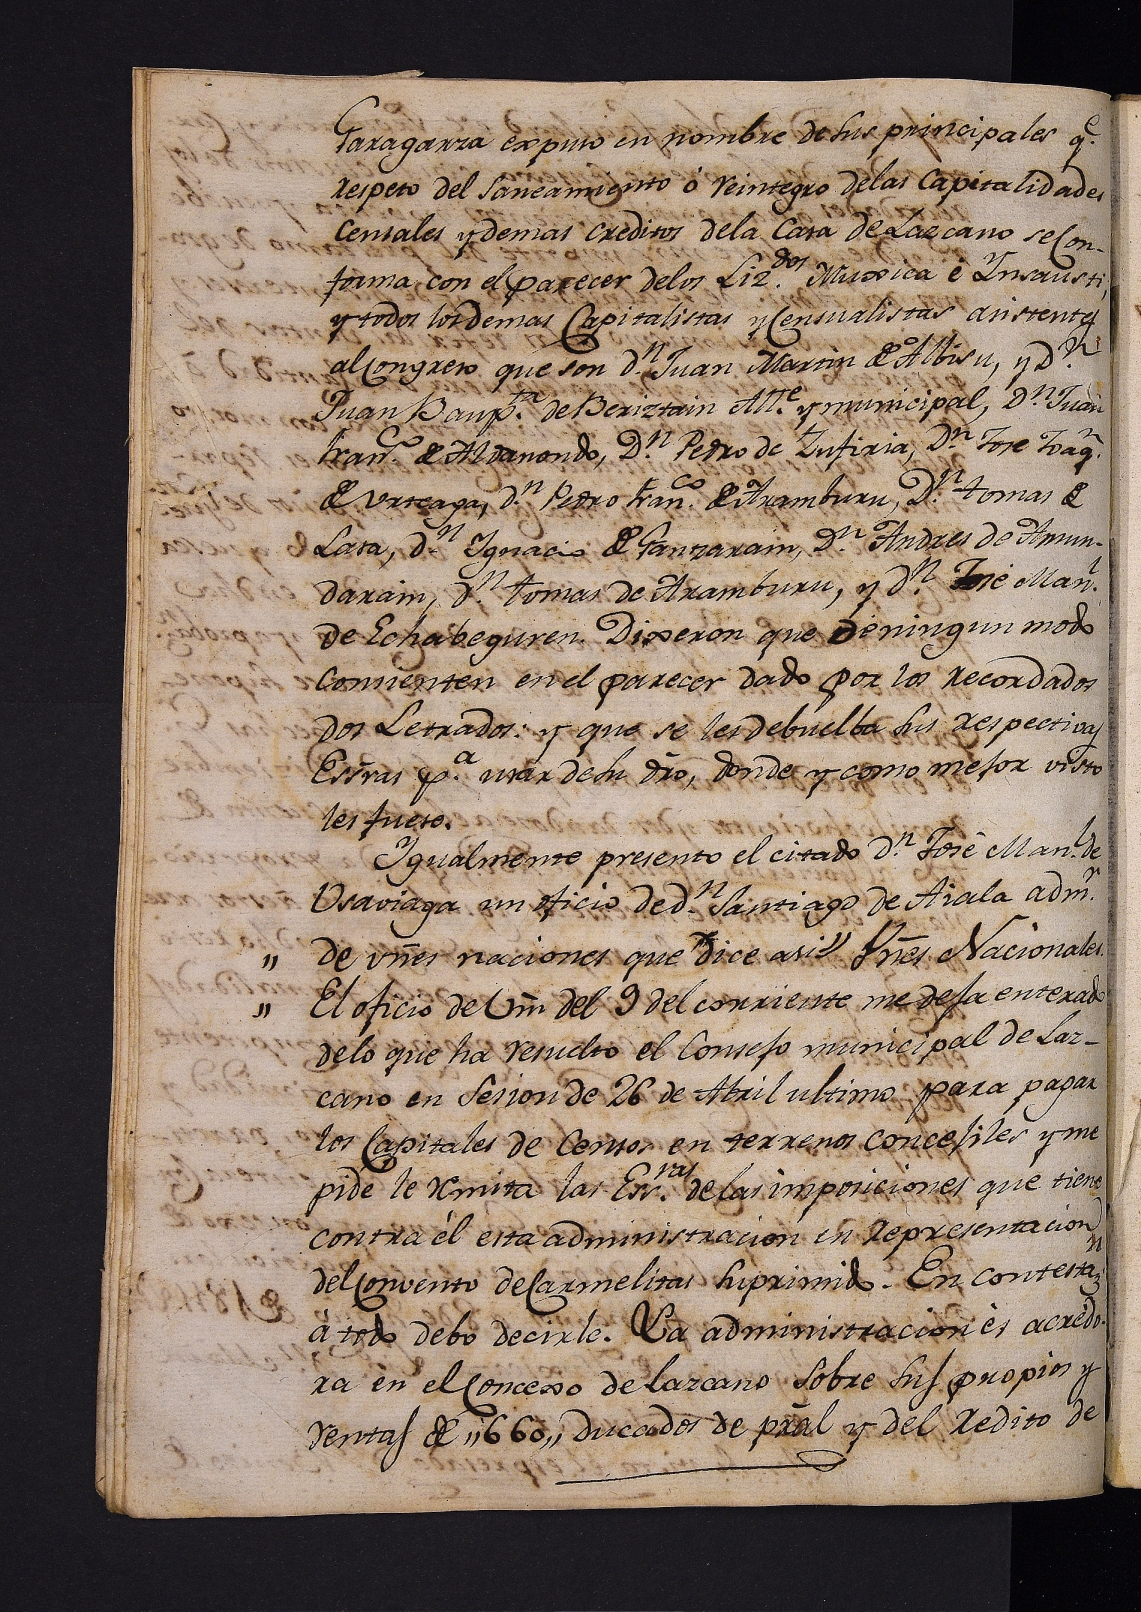 Garagarza expuso en nombre de sus principales q.e
respeto del Saneamiento ó reintegro delas Capitalidades
Censales y demas creditos dela Casa de Lazcano se Con-
forma con el parecer delos Liz.dos Muxica é Ynsausti,
y todos los demas Capitalistas y Censualistas asistentes
al Congreso que son d.n Juan Martin de Albisu, y D.n
Juan Baup.ta de Beriztain All.e y municipal, D.n Juan
fran.co de Aldanondo, D.n Pedro de Zufiria, D.n Jose Joaq.n
de Urteaga, d.n Pedro fran.co de Aramburu, D.n tomas de
Lasa, d.n Ygnacio de Gantzarain, D.n Andres de Amun-
darain, d.n tomas de Aramburu, y d.n José Man.l
de Echabeguren. Dixeron que de ningun modo
consienten en el parecer dado por los recordados
dos Letrados: y que se les debuelba sus respectivas
Esrras p.a usar de su dro, donde y como mejor visto
les fuese.
Ygualmente presento el citado d.n José Man.l de
Usaviaga un oficio de d.n Santiago de Aiala adm.r
„ de vnes naciones que dice asi„ Vnes Nacionales.
„ El oficio de Um del 9 del corriente me deja enterado
delo que ha resuelto el Consejo municipal de Laz-
cano en Sesion de 26 de Abril ultimo para pagar
los Capitales de Censos en terrenos concejiles y me
pide le remita las Esr.ras de las imposiciones que tiene
contra él esta administracion en representacion
del Convento de Carmelitas suprimido. En contestaz.n
á todo debo decirle. La administracion és acredo-
ra en el Concexo de lazcano sobre sus propios y
rentas de „660„ ducados de pral y del redito de